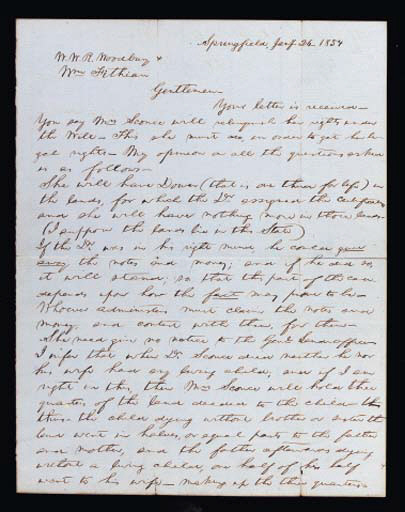 Springfield, Sept. 26. 1854
W. W. R. Woodbury &
Wm Fithian
Gentlemen
Your letter is received—
You say Mrs Sconce will relinquish her rights under
the Will— This she must do, in order to get her le-
gal rights— My opinion on all the questions asked
is as follows—
She will have Dower (that is one third for life) in
the lands, for which the Dr. assigned the certificates
and she will have nothing more in those lands
(I suppose the lands lie in this State)
If the Dr. was in his right mind he could give
away the notes and money; and if he did so,
it will stand; so that this part of the case
depends upon how the fact may prove to be—
Whoever administers must claim the notes and
money, and contest with them, for them—
She need give no notice to the Genl. Land office—
I infer that when Dr. Sconce died neither he nor
his wife had any living child; and if I am
right in this, then Mrs Sconce will hold three
quarters of the land deeded to the child—
thus— the child dying without brother or sister the
land went in halves, or equal parts to the father
and mother, and the father afterwards dying
without a living child, one half of his half
went to his wife— making up the three quarters—